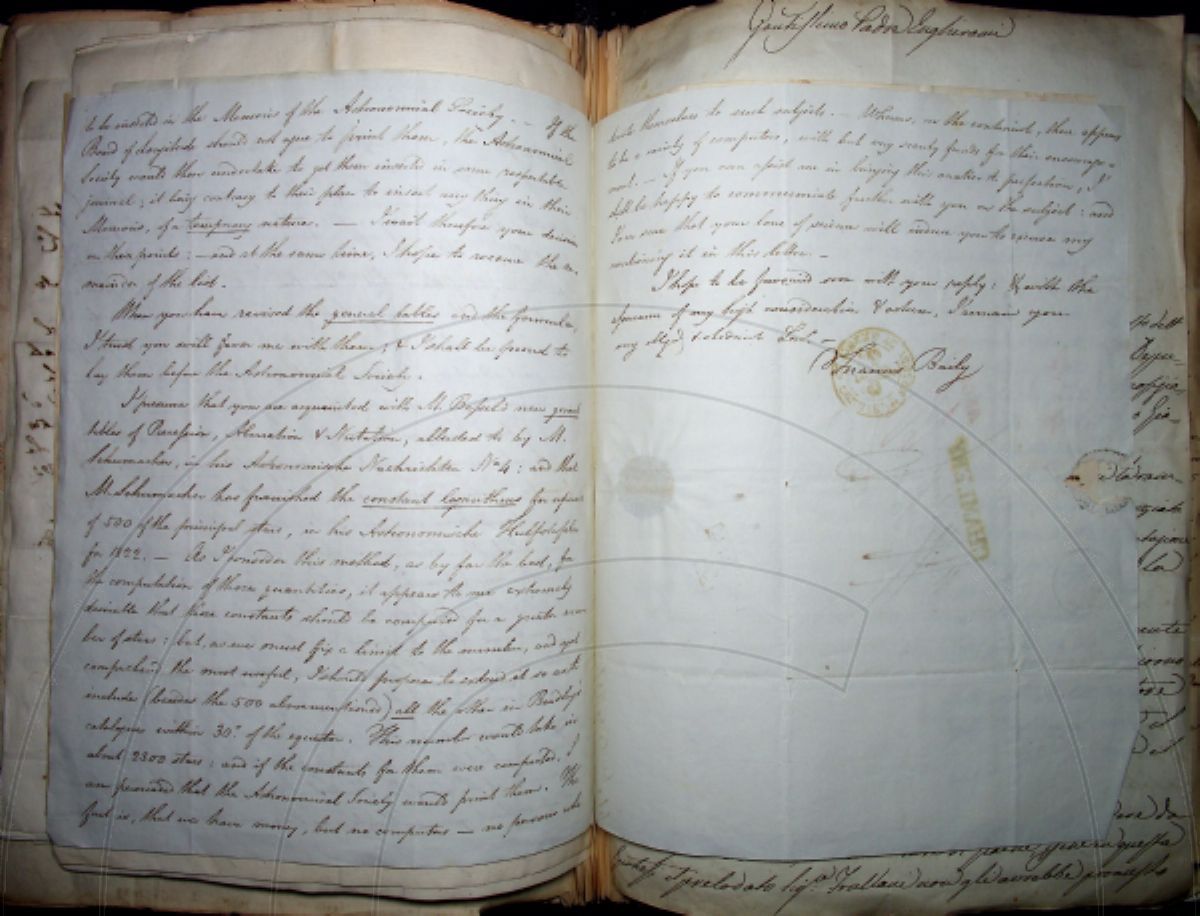 to be inserted in the Memoirs of the Astronomical Society. — If the
Board of Longitude should not agree to print them, the Astronomical
Society would then undertake to get them inserted in some respectable
journal; it being contrary to their plan to insert any thing in their
Memoirs, of a temporary nature. — I wait therefore your decision
on these points: — and at the same time, I hope to receive the re-
mainder of the list.
When you have revised the general tables and the formulæ,
I trust you will favor me with them; & I shall be proud to
lay them before the Astronomical Society.
I presume that you are acquainted with M. Bessel's new general
tables of Precession, Aberration & Nutation, alluded to by M.
Schumacher, in his Astronomische Nachrichten No 4: and that
M. Schumacher has furnished the constant logarithms for upwards
of 500 of the principal stars, in his Astronomische Hülfstafeln
for 1822. — As I consider this method, as by far the best, for
the computation of these quantities, it appears to me extremely
desirable that these constants should be computed for a greater num-
ber of stars: but, as we must fix a limit to the number, and yet
comprehend the most useful, I should propose to extend it so as to
include (besides the 500 abovementioned) all the other in Bradley's
catalogue within 30° of the equator. This number would take in
about 2300 stars: and if the constants for them were computed, I
am persuaded that the Astronomical Society would print them. The
fact is, that we have money, but no computers — no persons who
Gentilissimo Padre Inghirami
themselves to such subjects. — Whereas, on the continent, there appears
to be a variety of computers, with but very scanty funds for their encourage-
ment. — If you can assist me in bringing this matter to perfection, I
shall be happy to communicate further with you on the subject: and
I am sure that your love of science will induce you to excuse my
mentioning it in this letter. —
I hope to be favoured soon with your reply: & with the
assurance of my high consideration & esteem, I remain your
very oblig'd & obedient Servt. —
Francis Baily
CHAMBERY